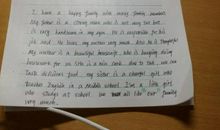 I have a happy family with many family members.
My father is a strong man who is not very tall but
is very handsome in my eyes. He is responsible for his
job and He loves my mother very much. Also he is thoughtful
My mother is a beautiful housewife, she is keeping doing
housework for us. She is a thin cook, due to that, we can
taste delicious food. my sister is a cheerful girl and
teaches English in a middle school. I'm a little girl
who studys at school. We all like our family
very much.